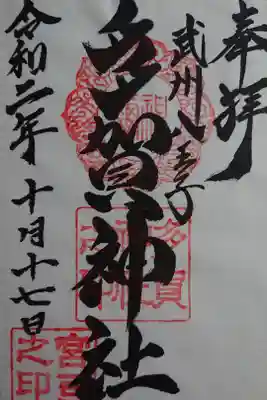 奉拝
武州八王子
多賀神社
令和二年十月十七日
多賀
宮司
之印